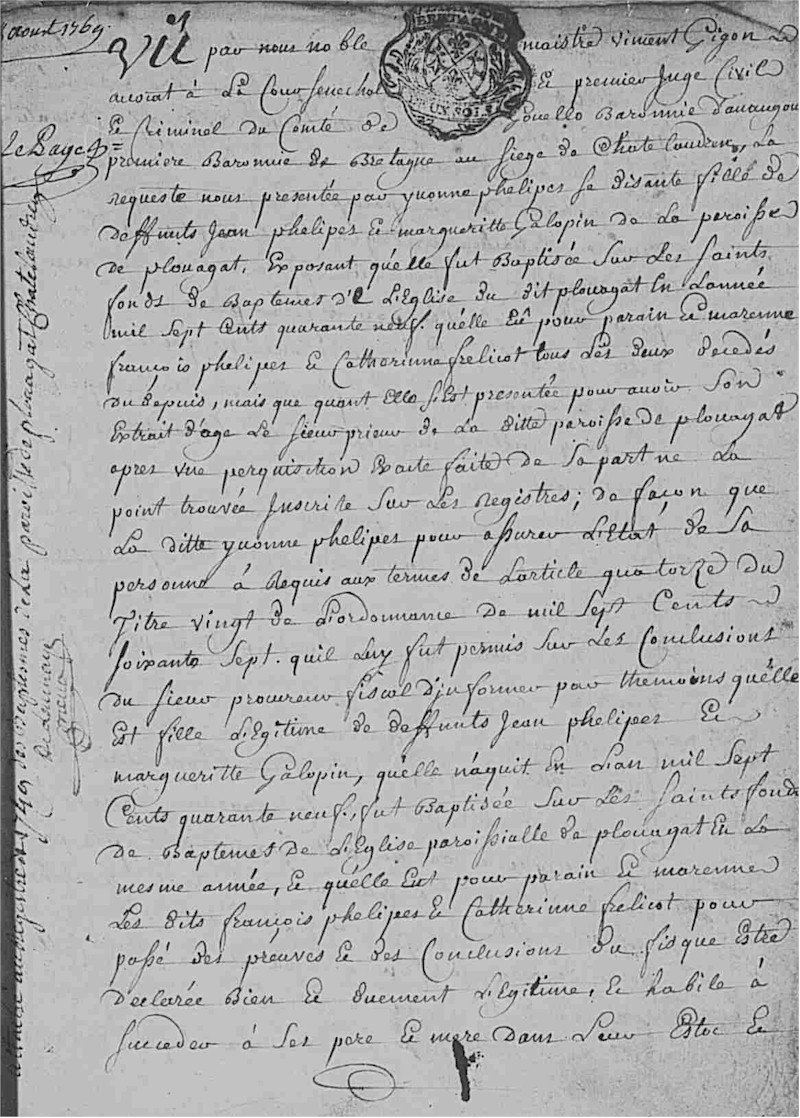 aoust 1769.
BRETAGNE
DEUX SOLS
Vu par nous noble maistre viment Gigon
avocat à La Cour senechal Et premier Juge Civil
Et Criminel du Comté de Gouello Baronnie d'avaugour
premiere Baronnie de Bretagne au siege de Chatelaudren, La
requeste nous presentée par yvonne phelipes se disante fille de
deffunts Jean phelipes Et margueritte Galopin de La paroisse
de plouagat, Exposant qu'elle fut Baptisée Sur Les saints
fonds de Baptemes de L'Eglise du dit plouagat En Lannée
mil sept Cents quarante neuf. qu'elle Eu pour parain Et marenne
françois phelipes Et Catherinne frelicot tous Les deux decedés
du depuis, mais que quant Elle s'est presentée pour avoir Son
Extrait d'age Le sieur prieur de La ditte paroisse de plouagat
apres une perquisition Exacte faite de Sa part ne La
point trouvée Inscrite Sur Les Registres; de façon que
La ditte yvonne phelipes pour assurer L'Etat de Sa
personne à Requis aux termes de Larticle quatorze du
Titre vingt de L'ordonnance de mil Sept Cents
soixante Sept. quil Luy fut permis Sur Les Conclusions
du sieur procureur fiscal d'informer par themoins qu'elle
Est fille Legitime de deffunts Jean phelipes Et
margueritte Galopin, qu'elle naquit En L'an mil Sept
Cents quarante neuf, fut Baptisée Sur Les saints fonds
de Baptemes de L'Eglise paroissialle de plouagat En La
mesme année, Et qu'elle Eut pour parain Et marenne
Les dits françois phelipes Et Catherinne frelicot pour
passé des preuves Et des Conclusions du fisque Estre
declarée Bien Et duement Legitime, Et habile à
succeder à Ses pere Et mere dans Leur Estoc Et
Le Page
au registre de 1749 des Baptemes de La paroisse de plouagat Chatelaudren